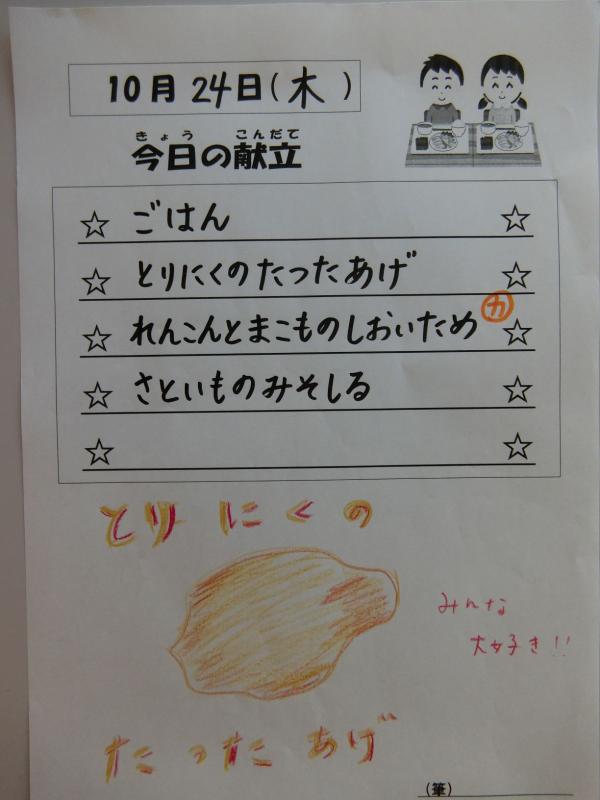 10月24日(木)
きょう こんだて
今日の献立
☆ ごはん ☆
☆ とりにくのたつたあげ ☆
☆ れんこんとまこものしおいため ㋕ ☆
☆ さといものみそしる ☆
☆ ☆
とりにくの
みんな
大好き!!
たつたあげ
(筆)